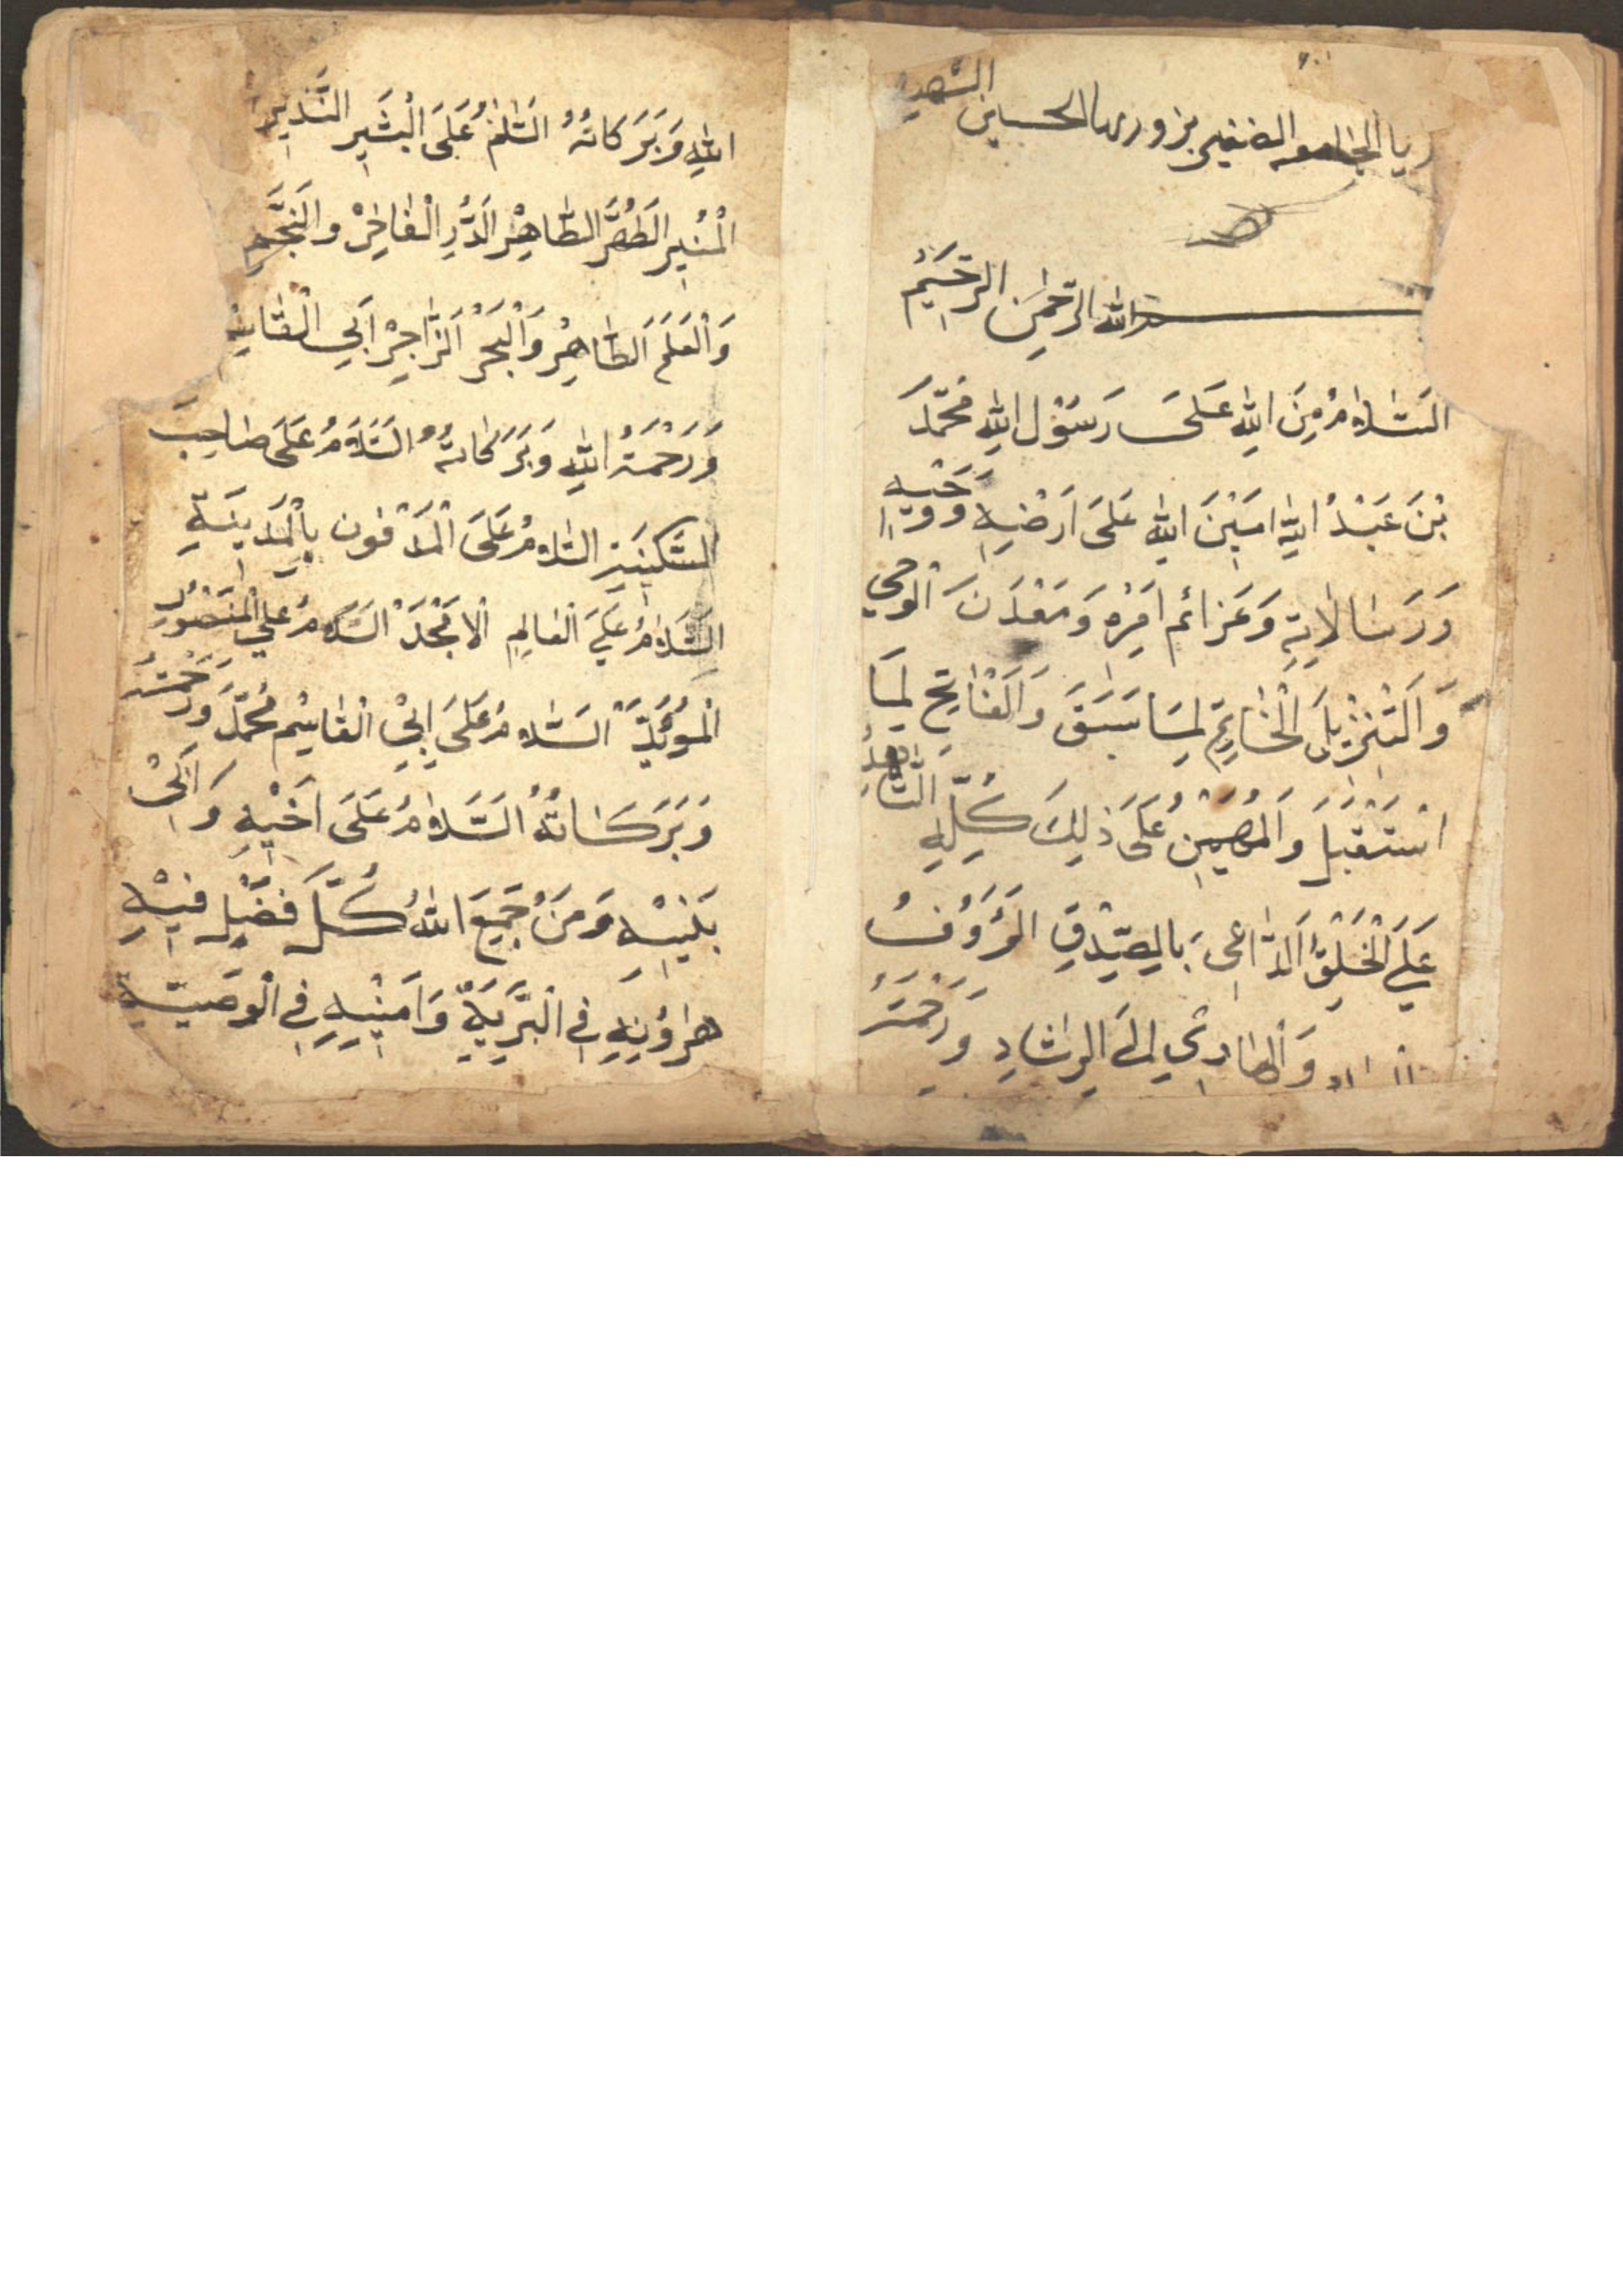 الجامعة الحسين الشهيد
الله الرحمن الرحيم
السَّلامُ مِنَ اللهِ عَلَى رَسُوْل اللهِ مُحَمَّد
بْنَ عَبْدُ اللهِ امَيْنَ الله عَلىَ اَرَضْيِهِ وَوَحْيِه
وَرَسَالاتِةِ وَعَزائم اَمْرِه وَمَعْدَنَ الْوَحْي
وَالَتْنَزْيِل الْخَاتِمَ لِمَا سَبَقَ وَالَفْاتِحِ لِمَا
اسْتَقْبَل وَالْمُهَيْمِنِ عَلَى ذلِكَ كُلِّهِ الشَّاهِدُ
عَلَى الْخَلْقِ الدَّاعي بَالِصّدْقِ الَرَؤُفُ
وَالْهادِي اِلىَ الرِشَادِ وَرَحْمَتُ
اللهِ وَبَرَكاتهُ السَّلمُ عَلَى الْبَشِير النَّذِيِرِ
الْمُنِير الَطُهْرَ الطَّاهِرْ الَدُّرِ الْفاخِرْ والَنَجّم
وَالْعَلَمَ الَطَّاهِرْ وَالْبَحَرْ الزَّاخِرْ اَبَي الْقَاسِم
وَرَحْمَةُ اللهِ وَبَرَكاتهُ السَّلَامُ عَلَى صَاحِبَ
السَّكِيْنَةِ السَّلامُ عَلَى الْمَدْفُون بِالْمَدِينَةِ
السَّلامُ عَلَىَ الْعالِمِ الْاَمْجَدْ السَّلامُ عَلَى الْمَنْصُوْرِ
الْمؤُيَّدْ السَّلامُ عَلَى اِبيْ الْقاسِمْ مُحَمَّدَ وَرَحْمَتُ
وَبَرَكَاتهُ السَّلامُ عَلَى اَخَيْهِ وَابَيْ
بَنْيِهِ وَمَنْ جَمَعَ اللهُ كُلَّ فَضْلٍ فيْهِ
هارُؤنِهِ فِي الْبَرَيَةِّ وَاَمِيْنِهِ فِي الْوَصيَّةِ